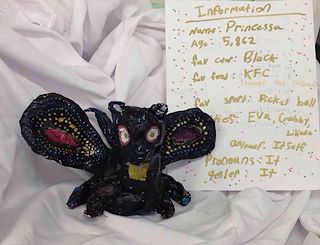 Information
Name: Princessa
Age: 5,862
fav color: Black
fav food: KFC
fav sport: Pickel ball
Eva, Gabby
animal: Itself
Pronouns: It
gender: It